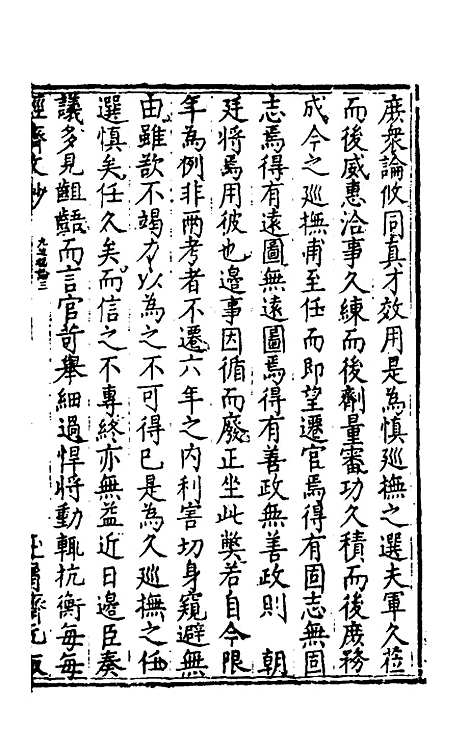 庶衆論攸同真才效用是為慎廵撫之選夫軍久蒞
而後威惠洽事久練而後劑量審功久積而後庶務
成今之廵撫甫至任而即望遷官焉得有固志無固
志焉得有遠圖無遠圖焉得有善政無善政則　朝
廷將焉用彼也邊事因循而廢正坐此獘若自今限
年為例非兩考者不遷六年之內利害切身窺避無
由雖欲不竭力以為之不可得已是為久廵撫之任
選慎矣任久矣而信之不專終亦無益近日邊臣奏
議多見齟齬而言官苛舉細過悍將動輒抗衡每每
經濟文鈔